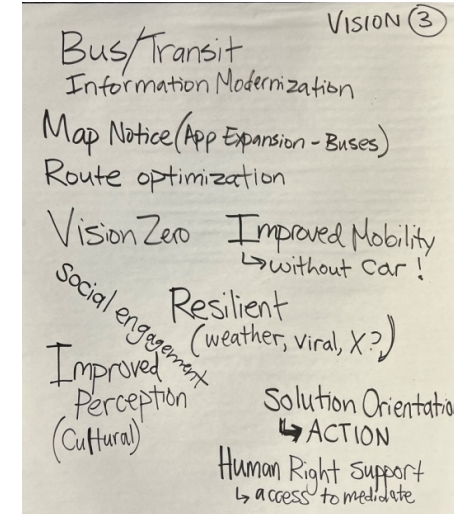 VISION 3
Bus/Transit
Information Modernization
Map Notice (App Expansion - Buses)
Route optimization
Vision Zero
Improved Mobility
↳ without Car!
Social engagement
Resilient
(weather, viral, X?)
Improved
Perception
(Cultural)
Solution Orientatio
↳ ACTION
Human Right Support
↳ access to medidate